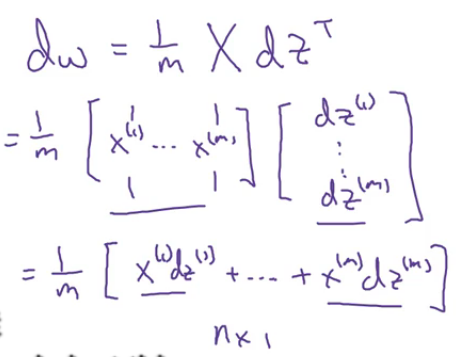 dw = 1/m X dz^T
= 1/m [x^(1) ... x^(m)] [dz^(1) ⋮ dz^(m)]
= 1/m [x^(1)dz^(1) + ... + x^(m)dz^(m)]
n x 1